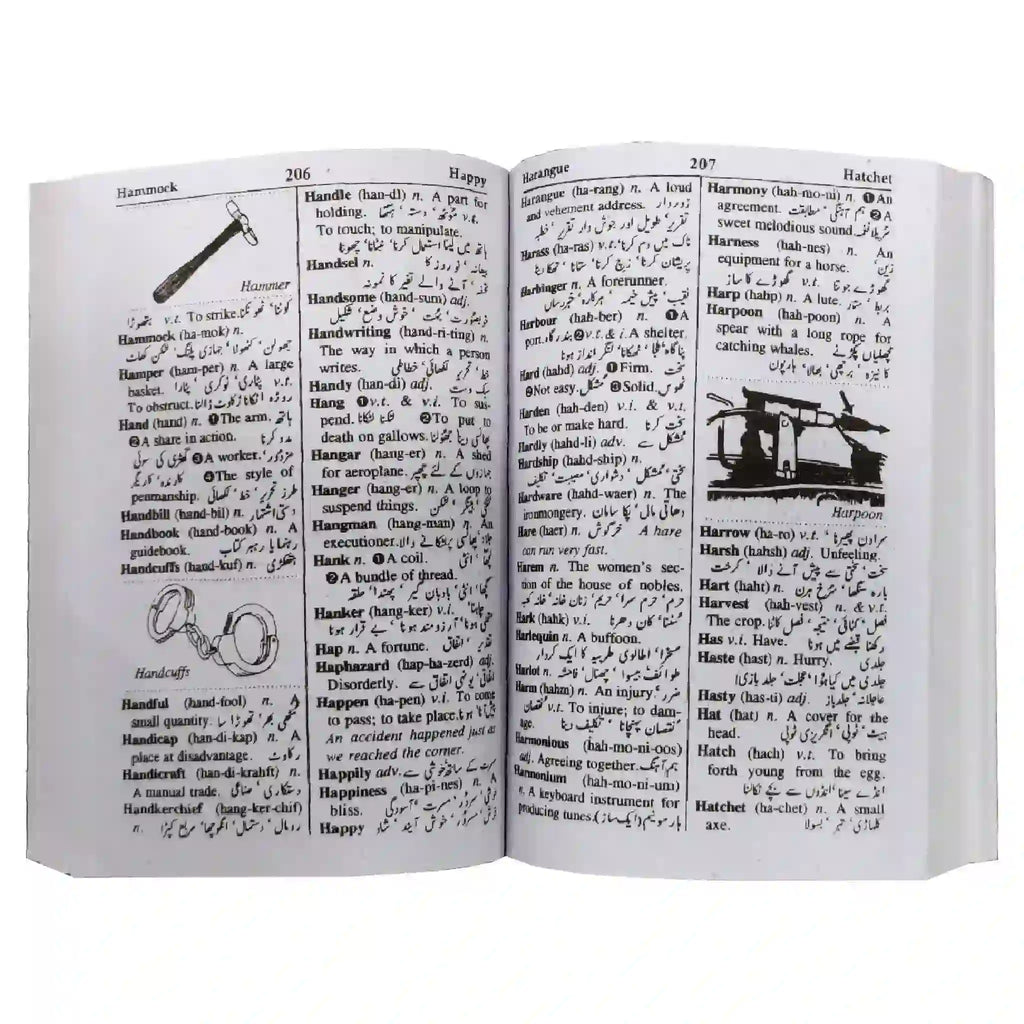 Hammock 206 Happy
Hammer
کوٹنا‘ ٹھونکنا v.t. To strike. ہتھوڑا
Hammock (ha-mok) n.
Hamper (ham-per) n. A large
basket. پٹاری‘ ٹوکری‘ پٹارا v.t.
To obstruct. روڑہ اٹکانا‘ رکاوٹ ڈالنا
Hand (hand) n. ❶The arm. ہاتھ
❷A share in action. مدد کرنا
❸A worker. مزدور‘ گھڑی کی سوئی
کارندہ‘ کاریگر ❹The style of
penmanship. طرز تحریر‘ خط‘ لکھائی
Handbill (hand-bil) n. دستی اشتہار
Handbook (hand-book) n. A
guidebook. رہنما یا رہبر کتاب
Handcuffs (hand-kuf) n. ہتھکڑی
Handcuffs
Handful (hand-fool) n. A
small quantity. مٹھی بھر‘ تھوڑا سا
Handicap (han-di-kap) n. A
place at disadvantage. رکاوٹ
Handicraft (han-di-krahft) n.
A manual trade. دستکاری‘ صناعی
Handkerchief (hang-ker-chif)
n. رومال‘ دستمال‘ انگوچھا‘ مربع کپڑا
Handle (han-dl) n. A part for
holding. موٹھ‘ دستہ‘ ہتھا v.t.
To touch; to manipulate.
ہاتھ میں لینا‘ استعمال کرنا‘ نپٹانا‘ چھونا
Handsel n. بیعانہ‘ نو روز کا
تحفہ‘ آنے والے نفع کا نمونہ
Handsome (hand-sum) adj.
خوبصورت‘ بہت‘ خوش وضع‘ شکیل
Handwriting (hand-ri-ting) n.
The way in which a person
writes. خط‘ تحریر‘ لکھائی‘ خطاطی
Handy (han-di) adj. سبک دست
Hang ❶v.t. & v.i. To sus-
pend. لٹکنا‘ لٹکانا ❷To put to
death on gallows. پھانسی دینا‘ جھولنا
Hangar (hang-er) n. A shed
for aeroplane. جہازوں کے لئے چھپر
Hanger (hang-er) n. A loop to
suspend things. کھونٹی‘ ہینگر
Hangman (hang-man) n. An
executioner. جلاد‘ پھانسی پر لٹکانے والا
Hank n. ❶A coil. لچھا‘ انٹی
❷A bundle of thread.
لچھا‘ انٹی‘ بادبان گیر‘ پھندا‘ حلقہ
Hanker (hang-ker) v.i. چاہنا
متمنی ہونا‘ آرزومند ہونا‘ بے قرار ہونا
Hap n. A fortune. تقدیر‘ اتفاق
Haphazard (hap-ha-zerd) adj.
Disorderly. اتفاقی‘ یونہی‘ اتفاق سے
Happen (ha-pen) v.i. To come
to pass; to take place.
An accident happened just as
we reached the corner.
Happily adv. مسرت کے ساتھ‘ خوشی سے
Happiness (ha-pi-nes) n. A
bliss. خوشی‘ سرور‘ مسرت‘ آسودگی
Happy خوش‘ مسرور‘ خوش آیند‘ شاد
Harangue 207 Hatchet
Harangue (ha-rang) n. A loud
and vehement address. زوردار
تقریر‘ طویل اور جوش دار تقریر‘ خطبہ
Harass (ha-ras) v.t. ناک میں دم کرنا
پریشان کرنا‘ زچ کرنا‘ ستانا‘ تھکا دینا
Harbinger n. A forerunner.
نقیب‘ پیش خیمہ‘ ہرکارہ‘ خبررساں
Harbour (hah-ber) n. ❶A
port. بندرگاہ ❷v.t. & i. A shelter.
پناہ گاہ‘ ٹھکانا‘ لنگر انداز ہونا
Hard (hahd) adj. ❶Firm. سخت
❷Not easy. مشکل ❸Solid. ٹھوس
Harden (hah-den) v.i. & v.t.
To be or make hard. سخت کرنا
Hardly (hahd-li) adv. مشکل سے
Hardship (hahd-ship) n.
سختی‘ مشکل‘ دشواری‘ مصیبت‘ تکلیف
Hardware (hahd-waer) n. The
ironmongery. دھاتی مال‘ پکا سامان
Hare (haer) n. خرگوش A hare
can run very fast.
Harem n. The women's sec-
tion of the house of nobles.
حرم‘ حرم سرا‘ حریم‘ زنان خانہ
Hark (hahk) v.i. سننا‘ کان دھرنا
Harlequin n. A buffoon.
مسخرا‘ اطالوی طربیہ کا ایک کردار
Harlot n. طوائف‘ بیسوا‘ چھنال‘ فاحشہ
Harm (hahm) n. An injury. ضرر
نقصان v.t. To injure; to dam-
age. نقصان پہنچانا‘ تکلیف دینا
Harmonious (hah-mo-ni-oos)
adj. Agreeing together. ہم آہنگ
Harmonium (hah-mo-ni-um)
n. A keyboard instrument for
producing tunes. ہارمونیم (ایک ساز)
Harmony (hah-mo-ni) n. ❶An
agreement. ہم آہنگی‘ مطابقت ❷A
sweet melodious sound.
Harness (hah-nes) n. An
equipment for a horse. زین‘
گھوڑے کا ساز v.t. گھوڑے جوتنا
Harp (hahp) n. A lute. بربط‘ ستار
Harpoon (hah-poon) n. A
spear with a long rope for
catching whales. مچھلیاں پکڑنے
کا نیزہ‘ برچھی‘ بھالا‘ ہارپون
Harpoon
Harrow (ha-ro) v.t. سراون پھیرنا
Harsh (hahsh) adj. Unfeeling.
سخت‘ سختی سے پیش آنے والا‘ کرخت
Hart (haht) n. بارہ سنگھا‘ سرخ ہرن
Harvest (hah-vest) n. & v.t.
The crop. فصل‘ کٹائی‘ نتیجہ‘ فصل کاٹنا
Has v.t. Have. رکھنا‘ قبضے میں ہونا
Haste (hast) n. Hurry. جلدی
جلدی میں کیا ہوا‘ عجلت‘ جلد بازی
Hasty (has-ti) adj. عاجلانہ‘ جلدباز
Hat (hat) n. A cover for the
head. ہیٹ‘ ٹوپی‘ انگریزی ٹوپی
Hatch (hach) v.t. To bring
forth young from the egg.
انڈے سینا‘ انڈوں سے بچے نکالنا
Hatchet (ha-chet) n. A small
axe. کلہاڑی‘ تبر‘ بسولا